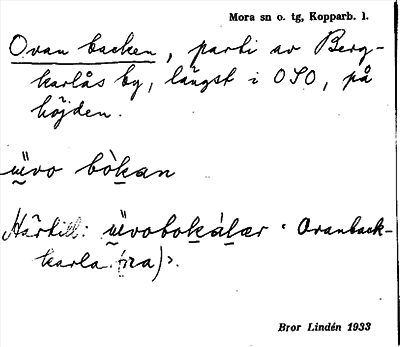 Mora sn o. tg, Kopparb. l.
Ovan backen, parti av Berg-
karlås by, längst i OSO, på
höjden.
üvo bòkan
Härtill: üvobokálær "Ovanback-
karla (ra)".
Bror Lindén 1933